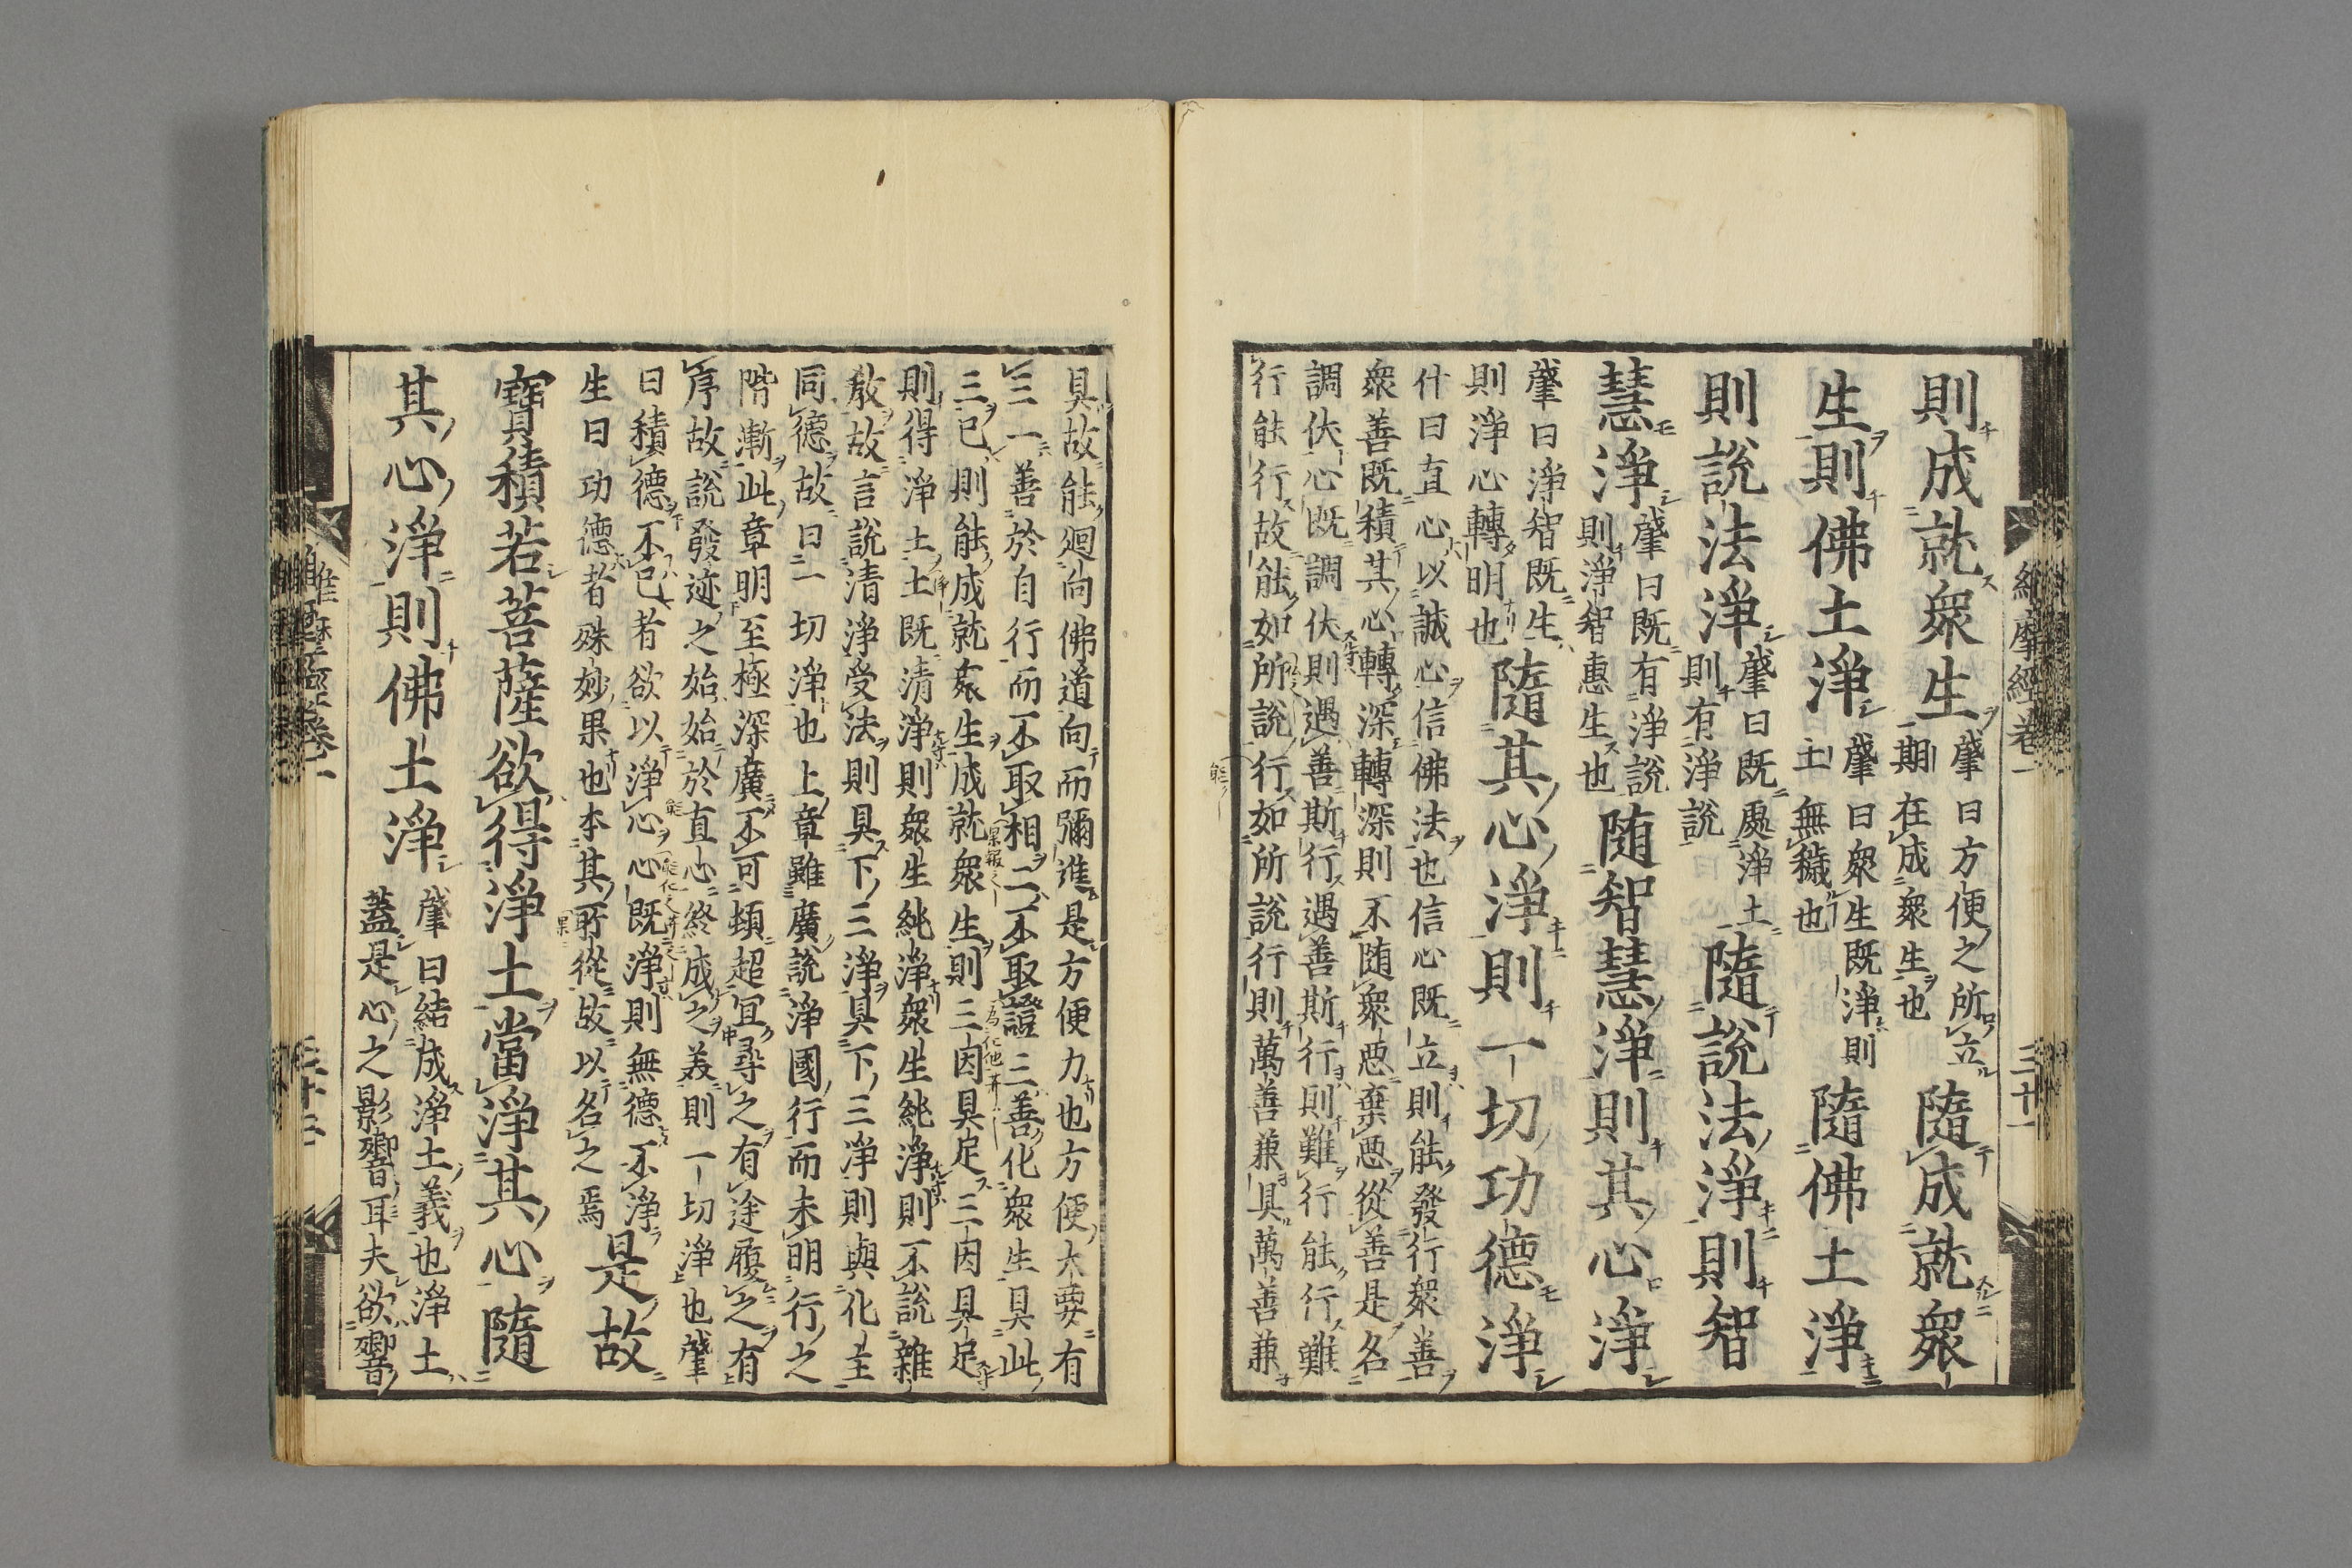 則成就衆生
肇曰方便之所立
期在成衆生也
隨成就衆
生則佛土淨
肇曰衆生既淨則
土無穢也
隨佛土淨
則說法淨
肇曰既處淨土
則有淨說
隨說法淨則智
慧淨
肇曰既有淨說
則淨智惠生也
随智慧淨則其心淨
肇曰淨智既生
則淨心轉明也
隨其心淨則一切功德淨
什曰直心以誠心信佛法也信心既立則能發行衆善
衆善既積其心轉深轉深則不随衆悪棄悪從善是名
調伏心既調伏則遇善斯行遇善斯行則難行能行難
行能行故能如所說行如所說行則萬善兼具萬善兼
維摩經卷一
三十一
具故能廻向佛道向而彌進是方便力也方便大要有
三一善於自行而不取相二不取證三善化衆生具此
三已則能成就衆生成就衆生則三因具足三因具足
則得淨土土既清淨則衆生純淨衆生純淨則不說雜
教故言說清淨受法則具下三淨具下三淨則與化主
同德故曰一切淨也上章雖廣說淨國行而未明行之
階漸此章明至極深廣不可頓超宜尋之有途履之有
序故說發迹之始始於直心終成之美則一切淨也肇
曰積德不已者欲以淨心心既淨則無德不淨
生曰功德者殊妙果也本其所從故以名之焉
是故
寶積若菩薩欲得淨土當淨其心隨
其心淨則佛土淨
肇曰結成淨土義也淨土
蓋是心之影響耳夫欲響
維摩經卷一
三十二